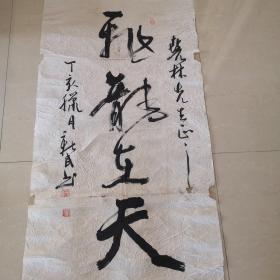 林先生正之
飛龍在天
丁亥臘月新民书